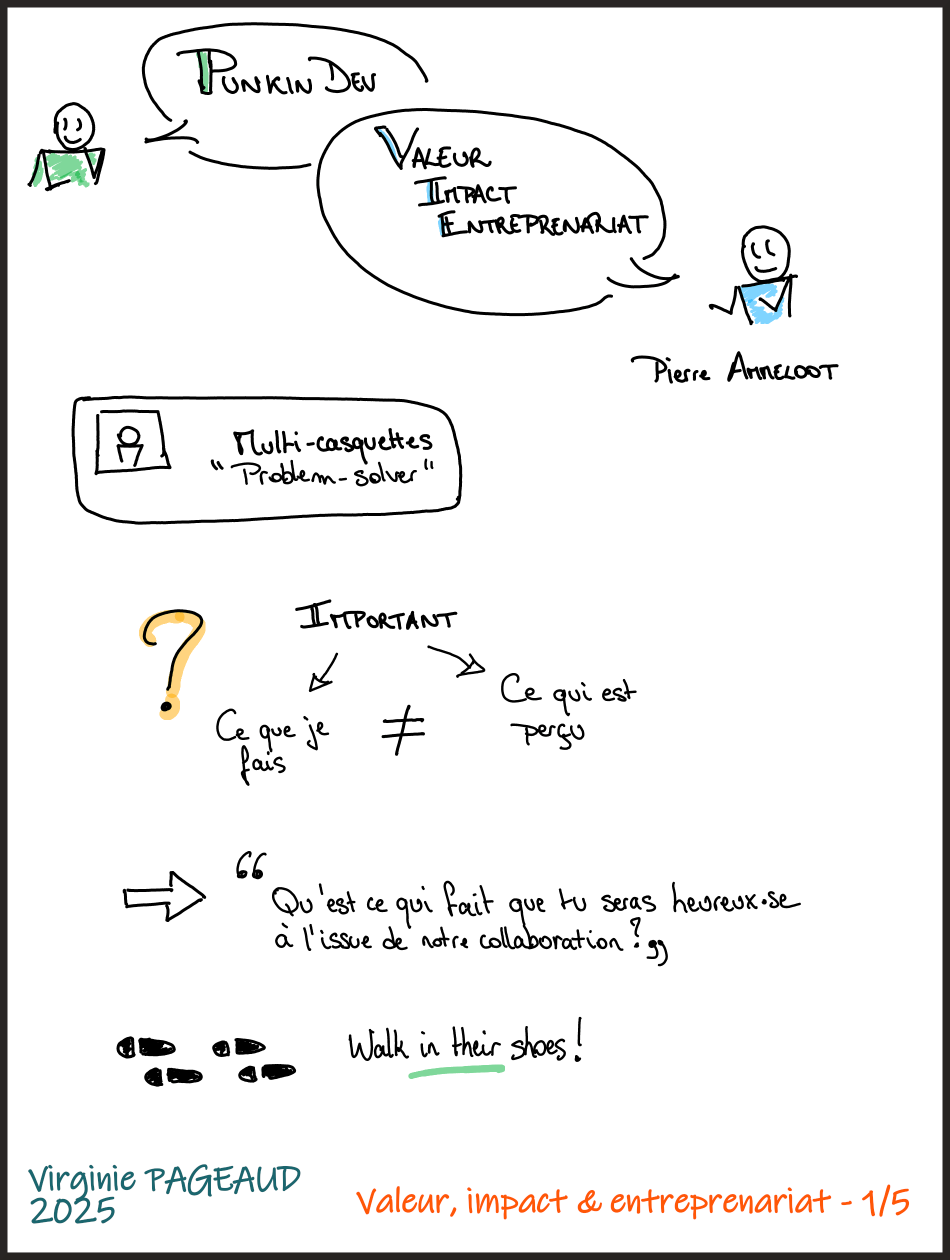 PUNKIN DEV
VALEUR
IMPACT
ENTREPRENARIAT
Pierre AMMELOOT
Multi-casquettes
"Problem-solver"
?
IMPORTANT
Ce que je
fais
≠
Ce qui est
perçu
“Qu'est ce qui fait que tu seras heureux·se
à l'issue de notre collaboration?”
Walk in their shoes!
Virginie PAGEAUD
2025
Valeur, impact & entreprenariat - 1/5